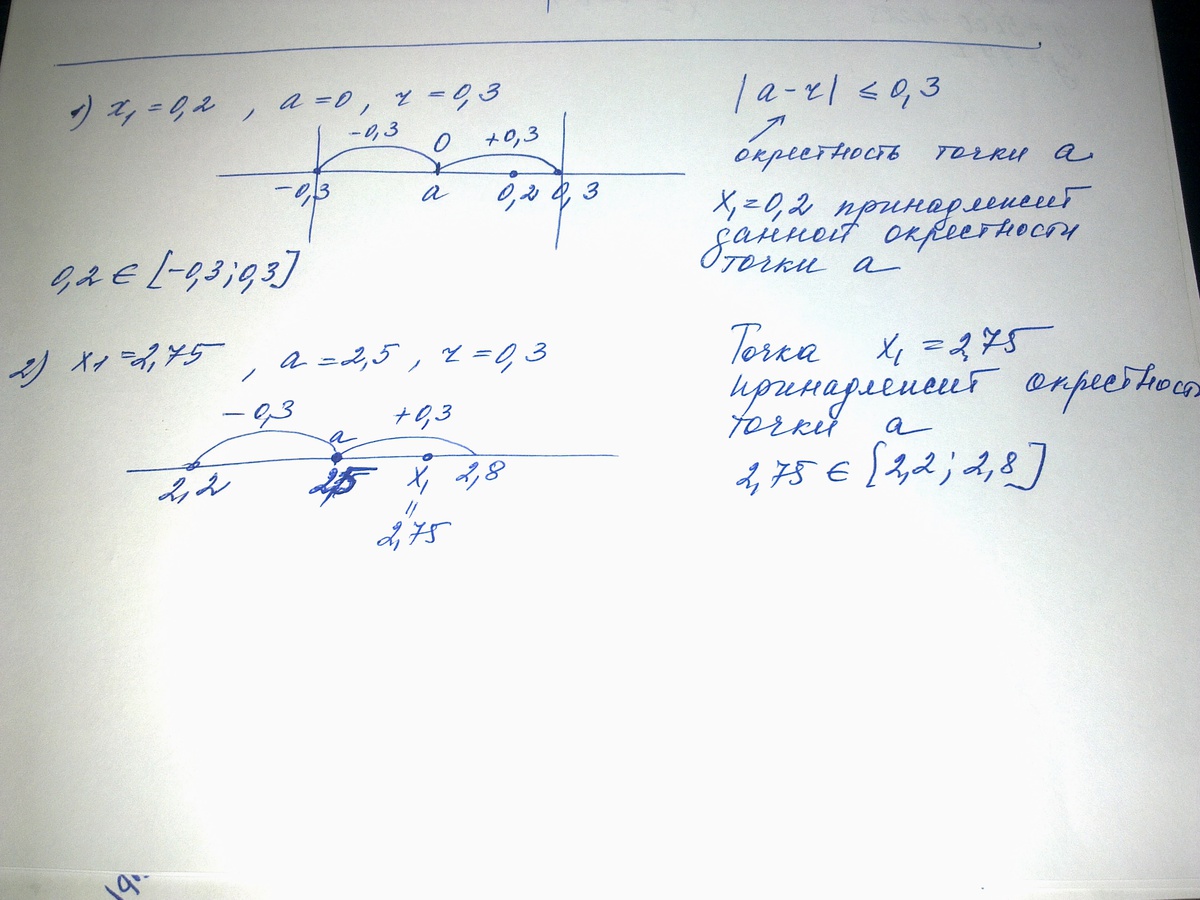 1) x₁ = 0,2 , a = 0, r = 0,3
-0,3 0 +0,3
-0,3 a 0,2 0,3
0,2 ∈ [-0,3; 0,3]
|a - r| ≤ 0,3
окрестность точки a
X₁ = 0,2 принадлежит
данной окрестности
точки a
2) x₁ = 2,75 , a = 2,5 , r = 0,3
-0,3 a +0,3
2,2 2,5 X₁ 2,8
=
2,75
Точка X₁ = 2,75
принадлежит окрестность
точки a
2,75 ∈ [2,2; 2,8]